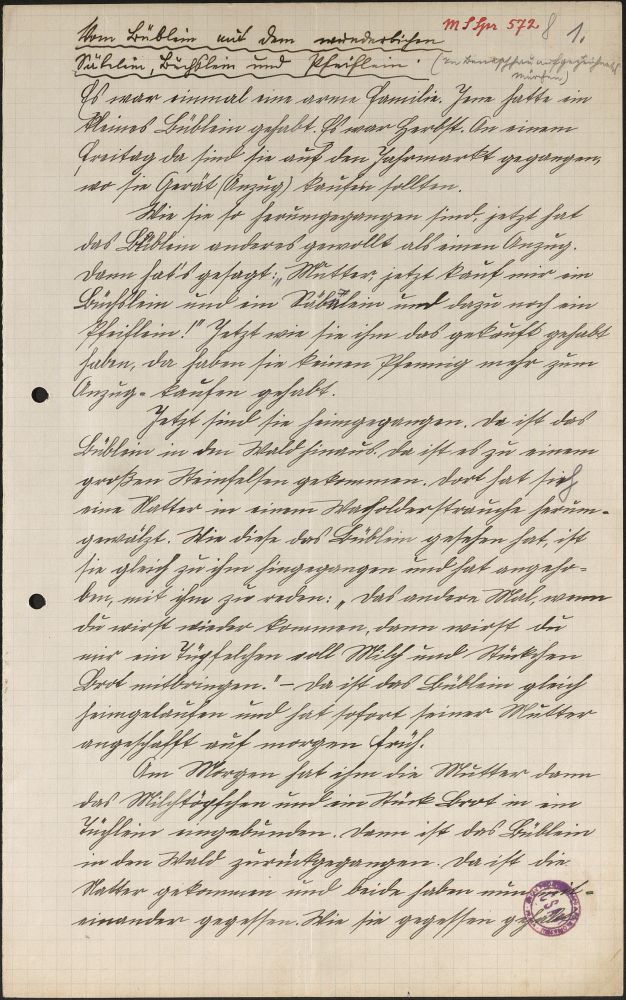 MS Spr 572 8 1.
Vom Büblein mit dem wunderlichen
Säbelein, Büchslein und Pfeiflein. (in Deutschpau aufgezeichnet
Märchen)
Es war einmal eine arme Familie. Jene hatte ein
kleines Büblein gehabt. Es war Herbst. An einem
Freitag da sind sie auf den Jahrmarkt gegangen,
wo sie Gerät (Anzug) kaufen sollten.
Wie sie so herumgegangen sind, jetzt hat
das Büblein anderes gewollt als einen Anzug.
Dann hat's gesagt: „Mutter, jetzt kauf mir ein
Büchslein und ein Säbelein und dazu noch ein
Pfeiflein!" Jetzt wie sie ihm das gekauft gehabt
haben, da haben sie keinen Pfennig mehr zum
Anzug-kaufen gehabt.
Jetzt sind sie heimgegangen. Da ist das
Büblein in den Wald hinaus. Da ist es zu einem
großen Steinfelsen gekommen. Dort hat sich
eine Natter in einem Wacholderstrauche herum-
gewälzt. Wie diese das Büblein gesehen hat, ist
sie gleich zu ihm hingegangen und hat angeho-
ben, mit ihm zu reden: „Das andere Mal, wenn
du wirst wieder kommen, dann wirst du
mir ein Tüpfelchen voll Milch und Stückchen
Brot mitbringen." – Da ist das Büblein gleich
heimgelaufen und hat sofort seiner Mutter
angeschafft auf morgen früh.
Am Morgen hat ihm die Mutter dann
das Milchtöpfchen und ein Stück Brot in ein
Tüchlein eingebunden. Dann ist das Büblein
in den Wald zurückgegangen. Da ist die
Natter gekommen und beide haben nun mit-
einander gegessen. Wie sie gegessen gehabt